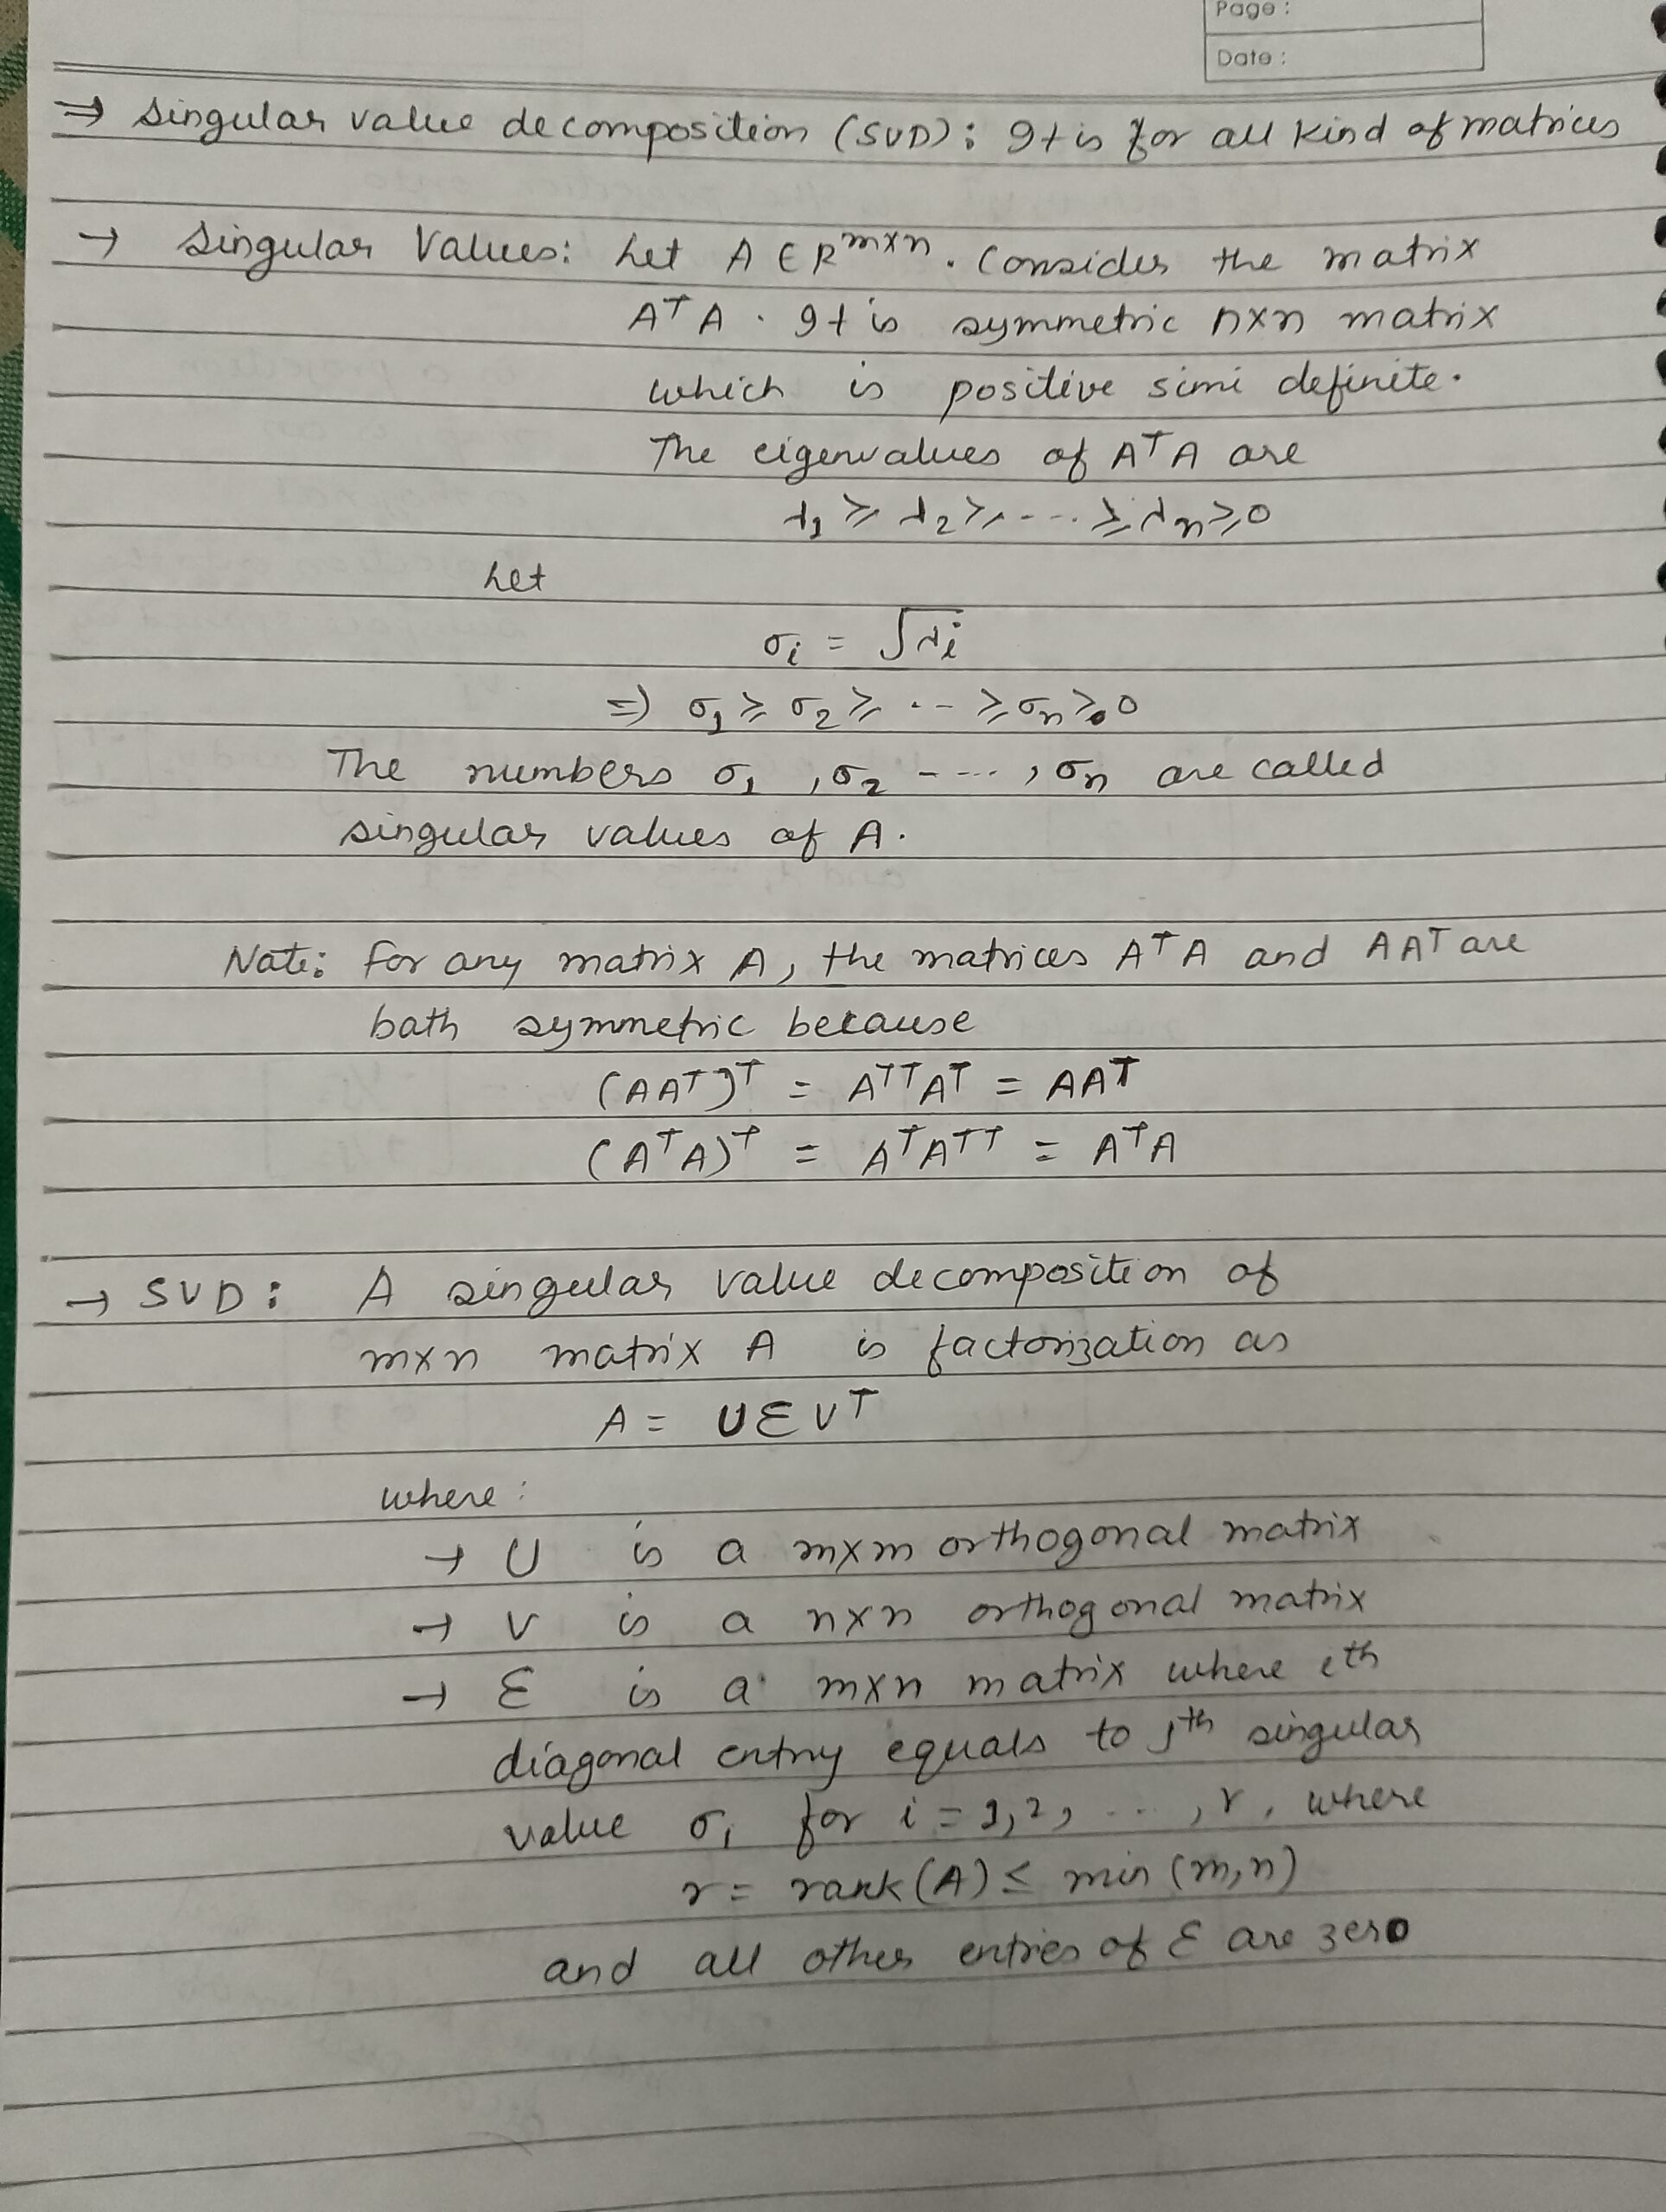 Page :
Date :
⇒ singular value decomposition (SVD): It is for all kind of matrices
→ Singular Values: Let A ∈ R^{m×n}. Consider the matrix
AᵀA. It is symmetric n×n matrix
which is positive simi definite.
The eigenvalues of AᵀA are
λ₁ ≥ λ₂ ≥ ---- ≥ λₙ ≥ 0
Let
σᵢ = √λᵢ
⇒ σ₁ ≥ σ₂ ≥ ---- ≥ σₙ ≥ 0
The numbers σ₁, σ₂ ----, σₙ are called
singular values of A.
Note: For any matrix A, the matrices AᵀA and AAᵀ are
both symmetric because
(AAᵀ)ᵀ = AᵀᵀAᵀ = AAᵀ
(AᵀA)ᵀ = AᵀAᵀᵀ = AᵀA
→ SVD: A singular value decomposition of
m×n matrix A is factorization as
A = UΣVᵀ
where:
→ U is a m×m orthogonal matrix
→ V is a n×n orthogonal matrix
→ Σ is a m×n matrix where ith
diagonal entry equals to ith singular
value σᵢ for i = 1, 2, ..., r, where
r = rank(A) ≤ min(m,n)
and all other entries of Σ are zero